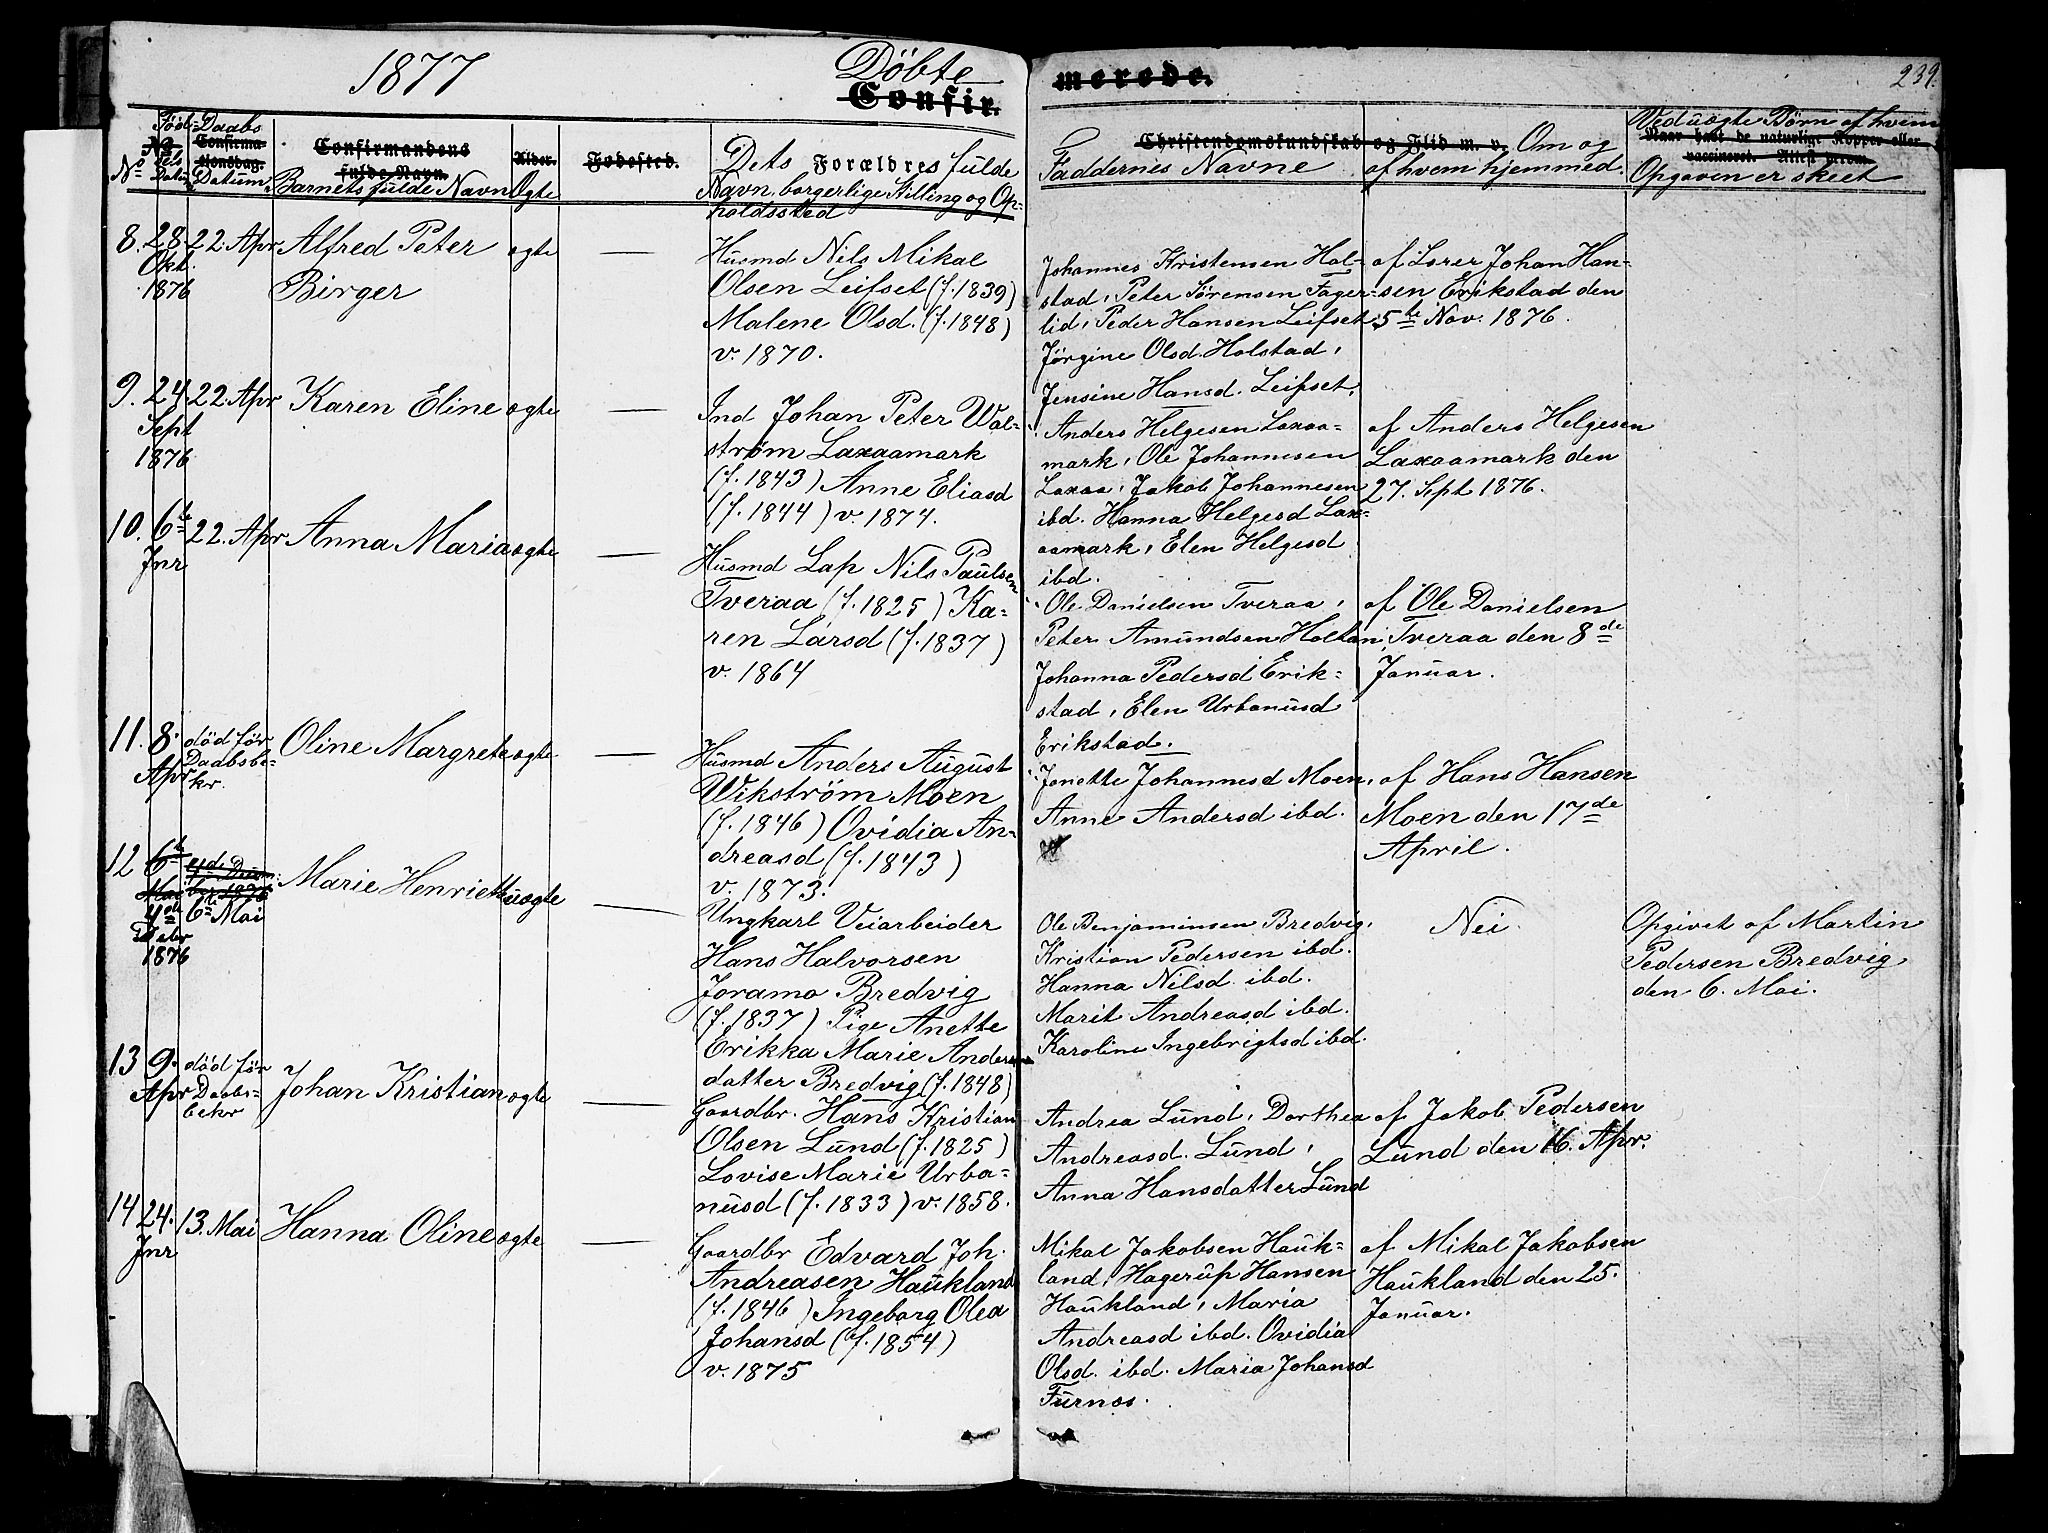 1877
Döbte
Confir-
merede.
239.
Föd-
Daabs
No
Confirma-
tionsdag.
No
sels
Datum
Datum
Confirmandens
fulde Navn.
Barnets fulde Navn
Alder.
Ægte
Fødested.
Dets Forældres fulde
Navn, borgerlige Stilling og Op-
holdssted
Christendomskundskab og Flid m. v.
Faddernes Navne
Om og
af hvem hjemmed.
Ved uægte Børn af hvem
Naar havt de naturlige Kopper eller
vaccineret. Attest herom.
Opgaven er skeet
8. 28. 22. Apr Alfred Peter ægte —
Okt.
1876
Birger
Husmd Nils Mikal
Olsen Leifset (f. 1839)
Malene Olsd. (f. 1848)
v. 1870.
Johannes Kristensen Hol-
stad, Peter Sörensen Fager-
lid, Peder Hansen Leifset,
Jörgine Olsd. Holstad,
Jensine Hansd. Leifset.
af Lærer Johan Han-
sen Erikstad den
5te Nov. 1876.
9. 24 22. Apr Karen Eline ægte —
Sept
1876
Ind Johan Peter Wal-
ström Laxaamark
(f. 1843) Anne Eliasd
(f. 1844) v. 1874.
Anders Helgesen Laxaa-
mark, Ole Johannesen
Laxaa, Jakob Johannesen
ibd. Hanna Helgesd Lax-
aamark, Elen Helgesd
ibd.
af Anders Helgesen
Laxaamark den
27. Sept 1876.
10. 6te 22. Apr Anna Maria ægte —
Jnr
Husmd Lap Nils Paulsen
Tveraa (f. 1825) Ka-
ren Larsd (f. 1837)
v. 1864
Ole Danielsen Tveraa,
Peter Amundsen Holtan,
Johanna Pedersd Erik-
stad, Elen Urbanusd
Erikstad.
af Ole Danielsen
Tveraa den 8de
Januar.
11. 8. död för Oline Margrete ægte —
Apr Daabsbe-
kr.
Husmd Anders August
Wikström Moen
(f. 1846) Ovidia An-
dreasd (f. 1843)
v. 1873.
Jonette Johannesd Moen,
Anne Andersd ibd.
af Hans Hansen
Moen den 17de
April.
12 6te 4de Decem-
Mai ber 1876
4de 6te Mai
Debr
1876
Marie Henriette uægte —
Ungkarl Veiarbeider
Hans Halvorsen
Joramo Bredvig
(f. 1837) Pige Anette
Erikka Marie Anders
datter Bredvig (f. 1848)
Ole Benjaminsen Bredvig,
Kristian Pedersen ibd.
Hanna Nilsd. ibd.
Marit Andreasd ibd.
Karoline Ingebrigtsd ibd.
Nei.
Opgivet af Martin
Pedersen Bredvig
den 6. Mai.
13 9. död för Johan Kristian ægte —
Apr Daabs-
bekr
Gaardbr. Hans Kristian
Olsen Lund (f. 1825)
Lovise Marie Urba-
nusd (f. 1833) v. 1858.
Andrea Lund, Dorthea
Andreasd. Lund,
Anna Hansdatter Lund
af Jakob Pedersen
Lund den 16. Apr.
14 24. 13. Mai Hanna Oline ægte —
Jnr
Gaardbr Edvard Joh.
Andreasen Haukland
(f. 1846) Ingeborg Olea
Johansd (f. 1854)
v. 1875
Mikal Jakobsen Hauk-
land, Hagerup Hansen
Haukland, Maria
Andreasd ibd. Ovidia
Olsd. ibd. Maria Johansd
Furnæs.
af Mikal Jakobsen
Haukland den 25.
Januar.